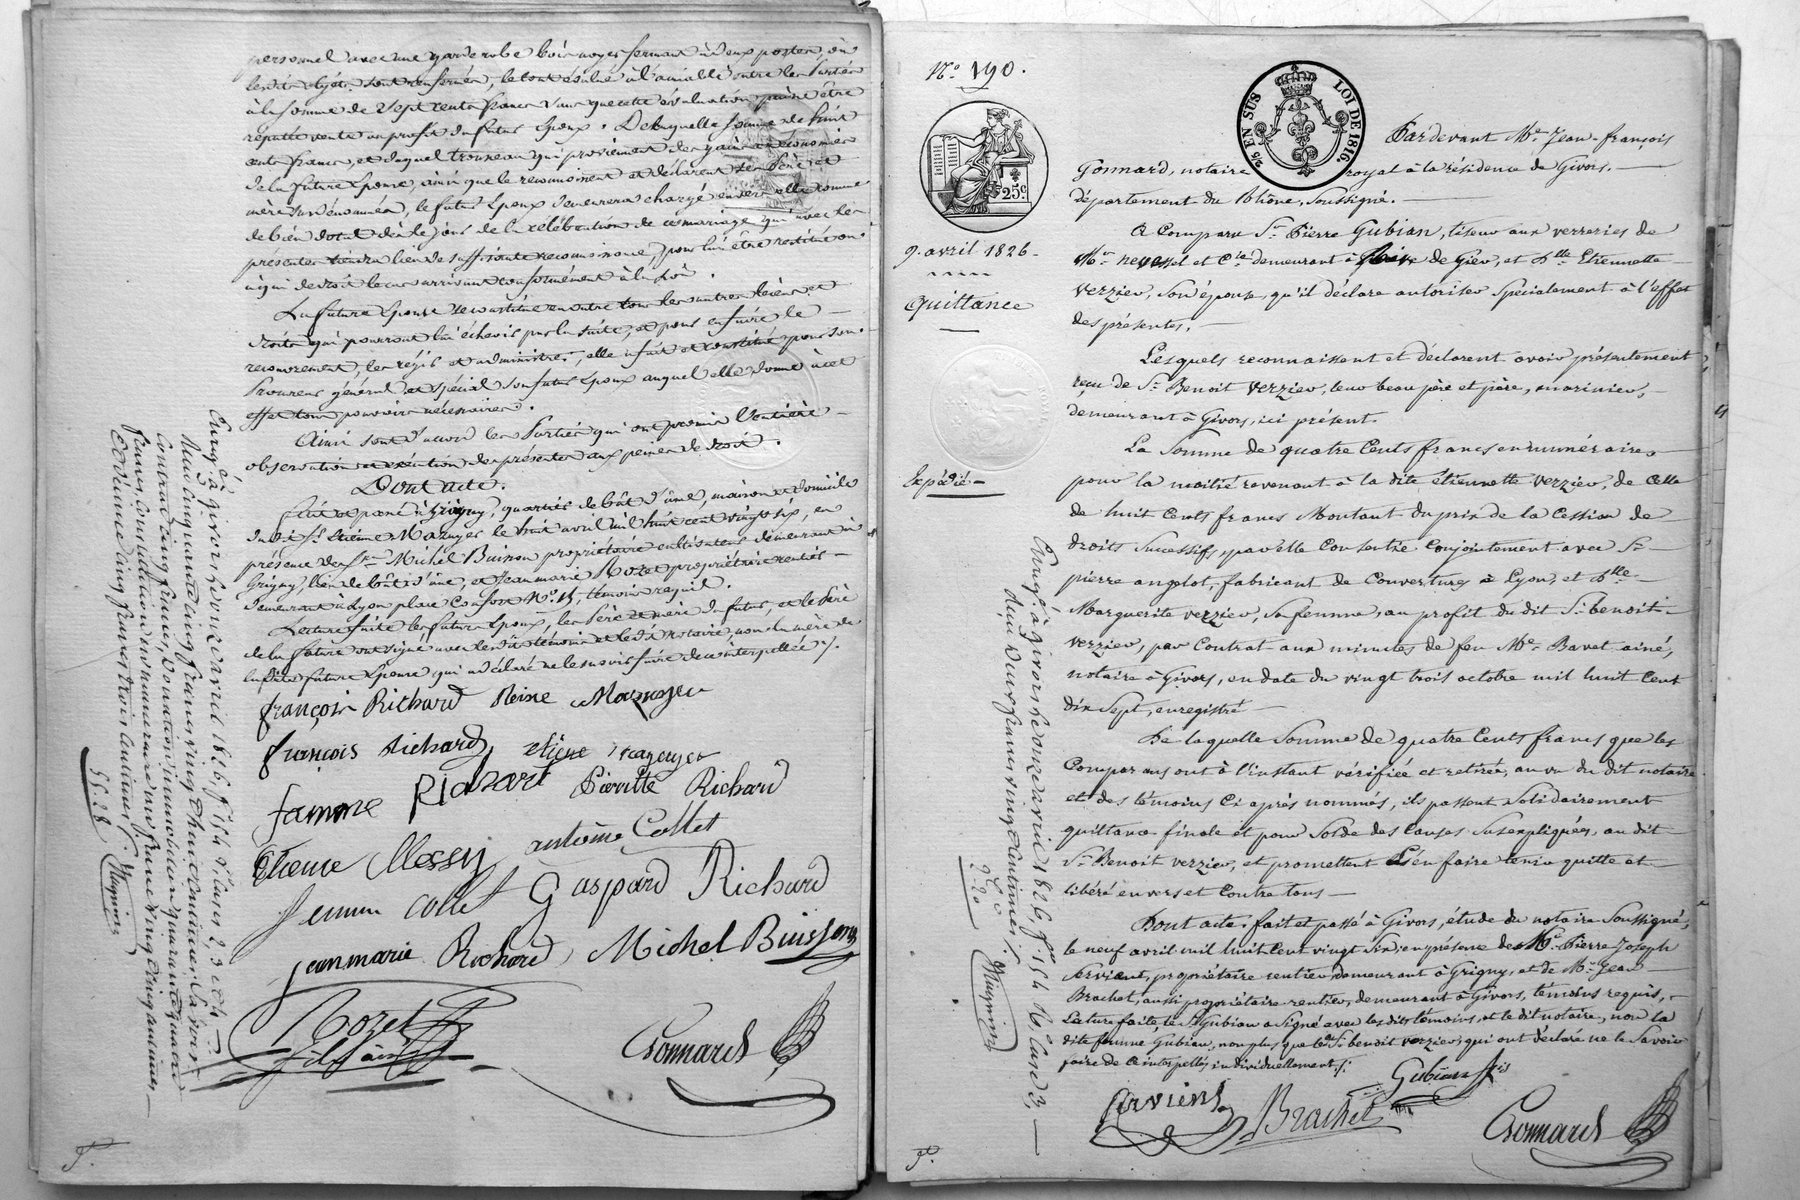 personnel avec une garderobe bois noyer fermant à deux portes, où
lesdits objets sont renfermés, le tout évalué à l'amiable entre les Parties
à la somme de Sept cents francs sans que cette évaluation puisse être
réputée vente au profit du futur Epoux. De laquelle Somme de huit
cents francs, et duquel trousseau qui proviennent des gains et économies
de la future Epouse, ainsi que le reconnoissent et déclarent ses Père et
mère sus dénommés, le futur Epoux demeurera chargé envers elle comme
de bien dotal dès le jour de la célébration de ce mariage qui avec les
présentes tiendra lieu de suffisante reconnoissance, pour lui être restitué ou
à qui de droit le cas arrivant conformément à la loi.
La future Epouse se constitue en outre tous les autres biens et
droits qui pourront lui échoir par la suite, et pour en faire le
recouvrement, les régir et administrer, elle a fait et constitué pour son
Procureur général et spécial son futur Epoux auquel elle donne à cet
effet tous pouvoirs nécessaires.
Ainsi sont d'accord les Parties qui ont promis l'entière
observation et exécution des présentes aux peines de droit.
Dont acte.
Fait et passé à Grigny, quartier de bât d'âne, maison et domicile
du dit Sr. Etienne Mazuyer le huit avril mil huit cent vingt six, en
présence de Srs. Michel Buisson propriétaire cultivateur demeurant à
Grigny, lieu de bât d'âne, et Jean marie Rozet propriétaire rentier
demeurant à Lyon place Confort No. 15, témoins requis.
Lecture faite les futurs Epoux, les Père et mère du futur, et le Père
de la future ont signé avec lesdits témoins et ledit notaire, non la mère de
ladite future Epouse qui a déclaré ne le savoir faire de ce interpellée ./.
françois Richard Reine Mazuyer
francois Richard etiene mazuyer
famme Richard Pierrette Richard
Etienne Clessy antoine Collet
femme collet Gaspard Richard
jeanmarie Richard Michel Buisson
Rozet
fils ainé
Gonnard
Enreg.é à givors le onze avril 1826, f.o 154 Vo. Cases 2, 3 et 4
cinquante cinq francs vingt huit centimes. Savoir
Contrat cinq francs, Donation immobilière quarante quatre
francs, Constitution en numéraire un franc vingt cinq centimes
Et décime cinq francs trois centimes ./.
55. 28
P.
No. 190.
25c.
5/6 EN SUS
LOI DE 1816.
9. avril 1826.
Quittance
Expédié
Pardevant Me. Jean-françois
Gonnard, notaire royal à la résidence de Givors.
département du Rhône, soussigné.
A Comparu Sr. Pierre Gubian, tiseur aux verreries de
Mr. neuvesel et Cie. demeurant à Rive de Gier, et Dlle Etiennette
Verzier, son épouse, qu'il déclare autoriser spécialement à l'effet
des présentes.
Lesquels reconnaissent et déclarent avoir présentement
reçu de Sr. Benoit Verzier, leur beau père et père, marinier,
demeurant à Givors, ici présent.
La Somme de quatre Cents francs en numéraire
pour la moitié revenant à la dite étiennette Verzier, de Celle
de huit Cents francs Montant du prix de la Cession de
droits Successifs, par elle Consentie Conjointement avec Sr.
pierre anglot, fabricant de Couvertures à Lyon, et Dlle
Marguerite Verzier, sa femme, au profit du dit Sr. benoit
Verzier, par Contrat aux minutes de feu Me. Bavet ainé,
notaire à Givors, en date du vingt trois octobre mil huit Cent
dix Sept, enregistré
De laquelle Somme de quatre Cents francs que les
Comparans ont à l'instant vérifiée et retirée, au vu du dit notaire
et des témoins Ci après nommés, ils passent Solidairement
quittance finale et pour Solde des Causes Susexpliquées, au dit
Sr. Benoit Verzier, et promettent L'en faire tenir quitte et
libéré envers et contre tous
Dont acte: fait et passé à Givors, étude du notaire Soussigné,
le neuf avril mil huit Cent vingt Six, en présence de Mr. Pierre Joseph
Servient, propriétaire rentier, demeurant à Grigny, et de Mr. Jean
Brachet, aussi propriétaire rentier, demeurant à Givors, témoins requis,
Lecture faite, le Sr. Gubian a Signé avec les dits témoins, et le dit notaire, non la
dite femme Gubian, non plus que ledt. Sr. benoit verzier, qui ont déclaré ne le Savoir
faire de Ce interpellés individuellement ./.
Servient Brachet Gubian fils
Gonnard
Enreg.é à givors le onze avril 1826, f.o 154 Vo. Case 3,
Reçu deux francs vingt centimes ./.
2. 20
P.